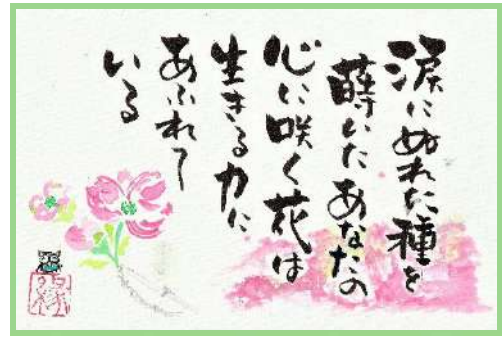 涙にぬれた種を
蒔いたあなたの
心に咲く花は
生きる力に
あふれて
いる